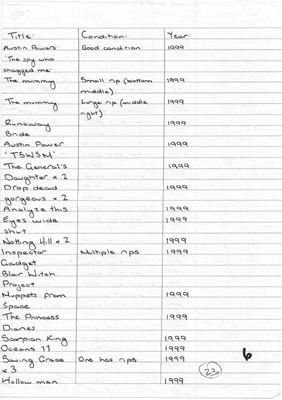 Title: Condition: Year:
Austin Powers Good condition 1999
'The spy who
shagged me'
The mummy Small rip (bottom 1999
middle)
The mummy Large rip (middle 1999
right)
Runaway 1999
Bride
Austin Power 1999
'TSWSM'
The General's 1999
Daughter x 2
Drop dead 1999
gorgeous x 2
Analyse this 1999
Eyes wide 1999
shut
Notting Hill x 2 1999
Inspector Multiple rips 1999
Gadget
Blair Witch
Project
Muppets from 1999
Space
The Princess 1999
Diaries
Scorpion King 1999
Oceans 11 1999
Saving Grace One has rips 1999
x 3
Hollow man 1999
23
6